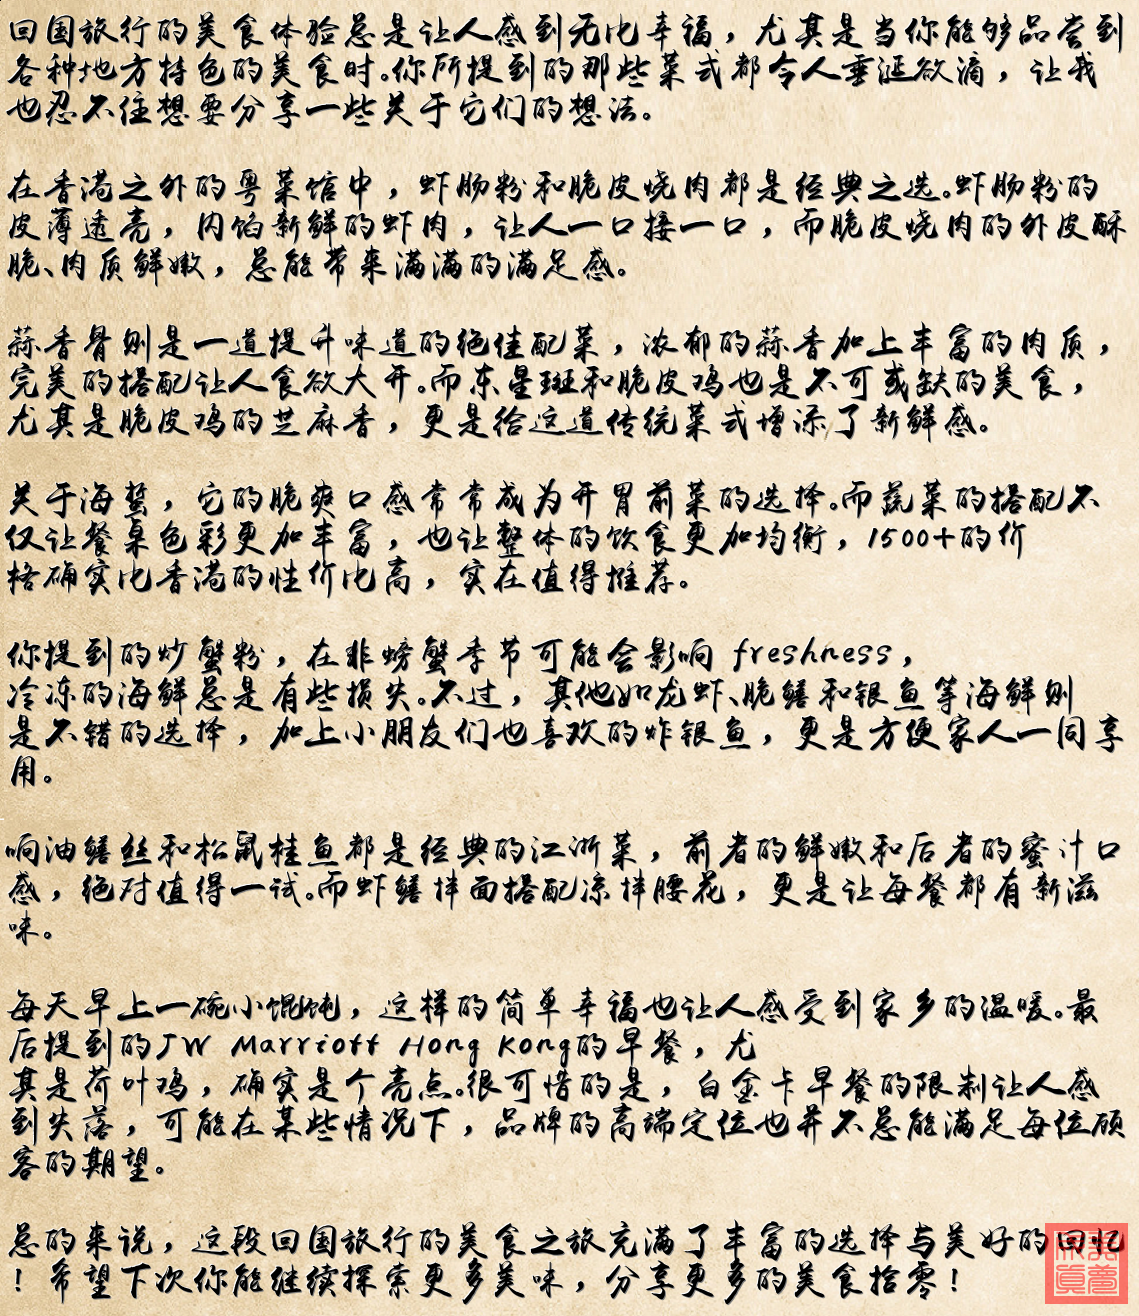 回国旅行的美食体验总是让人感到无比幸福，尤其是当你能够品尝到
各种地方特色的美食时。你所提到的那些菜式都令人垂涎欲滴，让我
也忍不住想要分享一些关于它们的想法。
在香港之外的粤菜馆中，虾肠粉和脆皮烧肉都是经典之选。虾肠粉的
皮薄透亮，内馅新鲜的虾肉，让人一口接一口，而脆皮烧肉的外皮酥
脆、肉质鲜嫩，总能带来满满的满足感。
蒜香骨则是一道提升味道的绝佳配菜，浓郁的蒜香加上丰富的肉质，
完美的搭配让人食欲大开。而东星斑和脆皮鸡也是不可或缺的美食，
尤其是脆皮鸡的芝麻香，更是给这道传统菜式增添了新鲜感。
关于海蜇，它的脆爽口感常常成为开胃前菜的选择。而蔬菜的搭配不
仅让餐桌色彩更加丰富，也让整体的饮食更加均衡，1500+的价
格确实比香港的性价比高，实在值得推荐。
你提到的炒蟹粉，在非螃蟹季节可能会影响 freshness，
冷冻的海鲜总是有些损失。不过，其他如龙虾、脆鳝和银鱼等海鲜则
是不错的选择，加上小朋友们也喜欢的炸银鱼，更是方便家人一同享
用。
响油鳝丝和松鼠桂鱼都是经典的江浙菜，前者的鲜嫩和后者的蜜汁口
感，绝对值得一试。而虾鳝拌面搭配凉拌腰花，更是让每餐都有新滋
味。
每天早上一碗小馄饨，这样的简单幸福也让人感受到家乡的温暖。最
后提到的JW Marriott Hong Kong的早餐，尤
其是荷叶鸡，确实是个亮点。很可惜的是，白金卡早餐的限制让人感
到失落，可能在某些情况下，品牌的高端定位也并不总能满足每位顾
客的期望。
总的来说，这段回国旅行的美食之旅充满了丰富的选择与美好的回忆
！希望下次你能继续探索更多美味，分享更多的美食拾零！